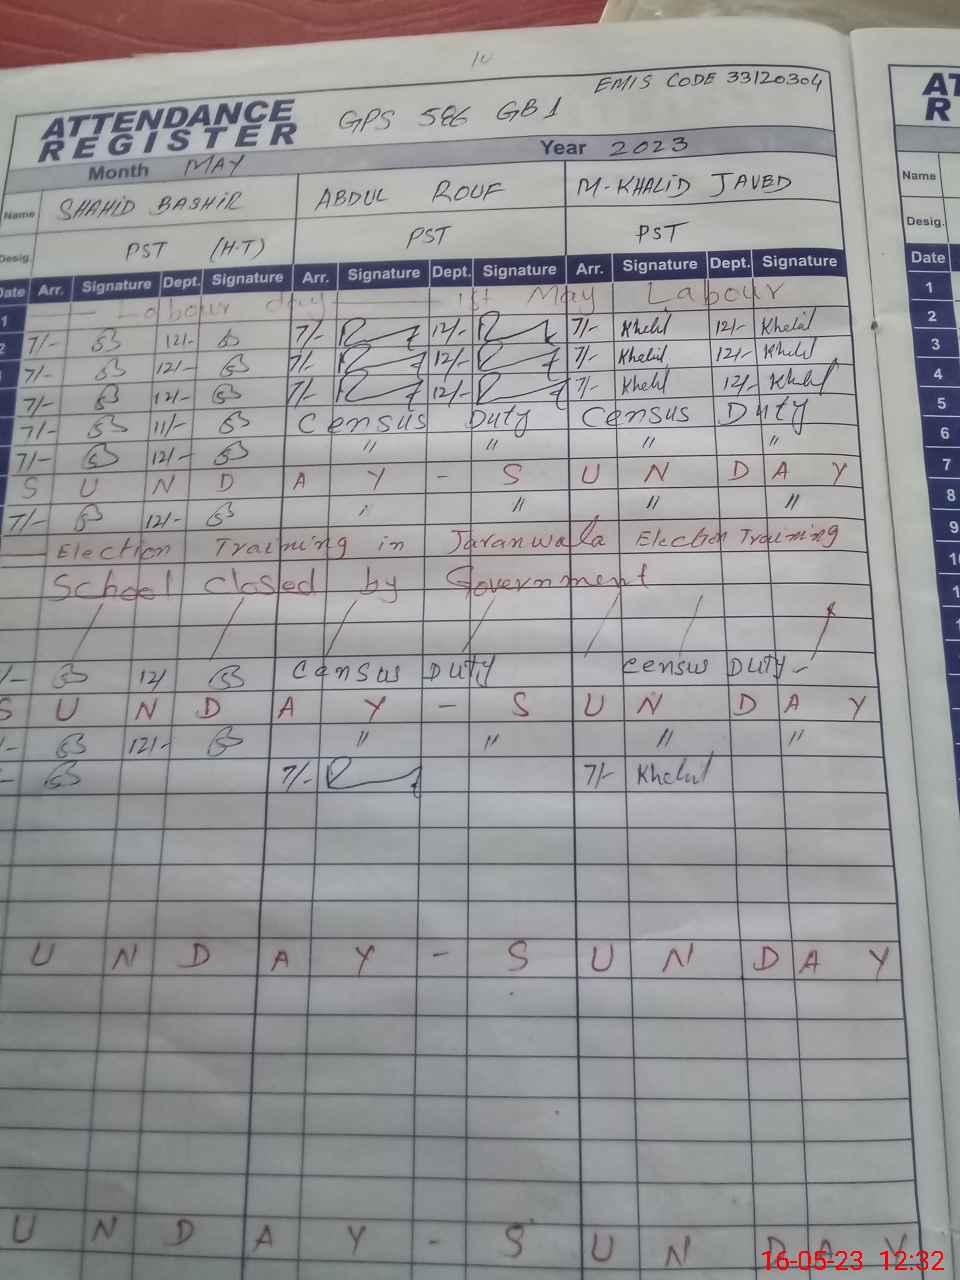 10
EMIS CODE 33120304
ATTENDANCE REGISTER GPS 586 GB 1
Month MAY Year 2023
Name SHAHID BASHIR ABDUL ROUF M-KHALID JAVED
Desig. PST (H-T) PST PST
Date Arr. Signature Dept. Signature Arr. Signature Dept. Signature Arr. Signature Dept. Signature
1 Labour day 1st May Labour
2 7/- 12/- 7/- 12/- 7/- Khalid 12/- Khalid
7/- 12/- 7/- 12/- 7/- Khalid 12/- Khalid
7/- 12/- 7/- 12/- 7/- Khalid 12/- Khalid
7/- 11/- Census Duty Census Duty
7/- 12/- " " " "
S U N D A Y - S U N D A Y
7/- 12/- " " " "
Election Training in Jaranwala Election Training
School closed by Government
/- 12/ Census Duty Census Duty -
S U N D A Y - S U N D A Y
/- 12/- " " " "
- 7/- 7/- Khalid
U N D A Y - S U N D A Y
U N D A Y - S U N D A Y
AT
R
Name
Desig.
Date
1
2
3
4
5
6
7
8
9
16-05-23 12:32